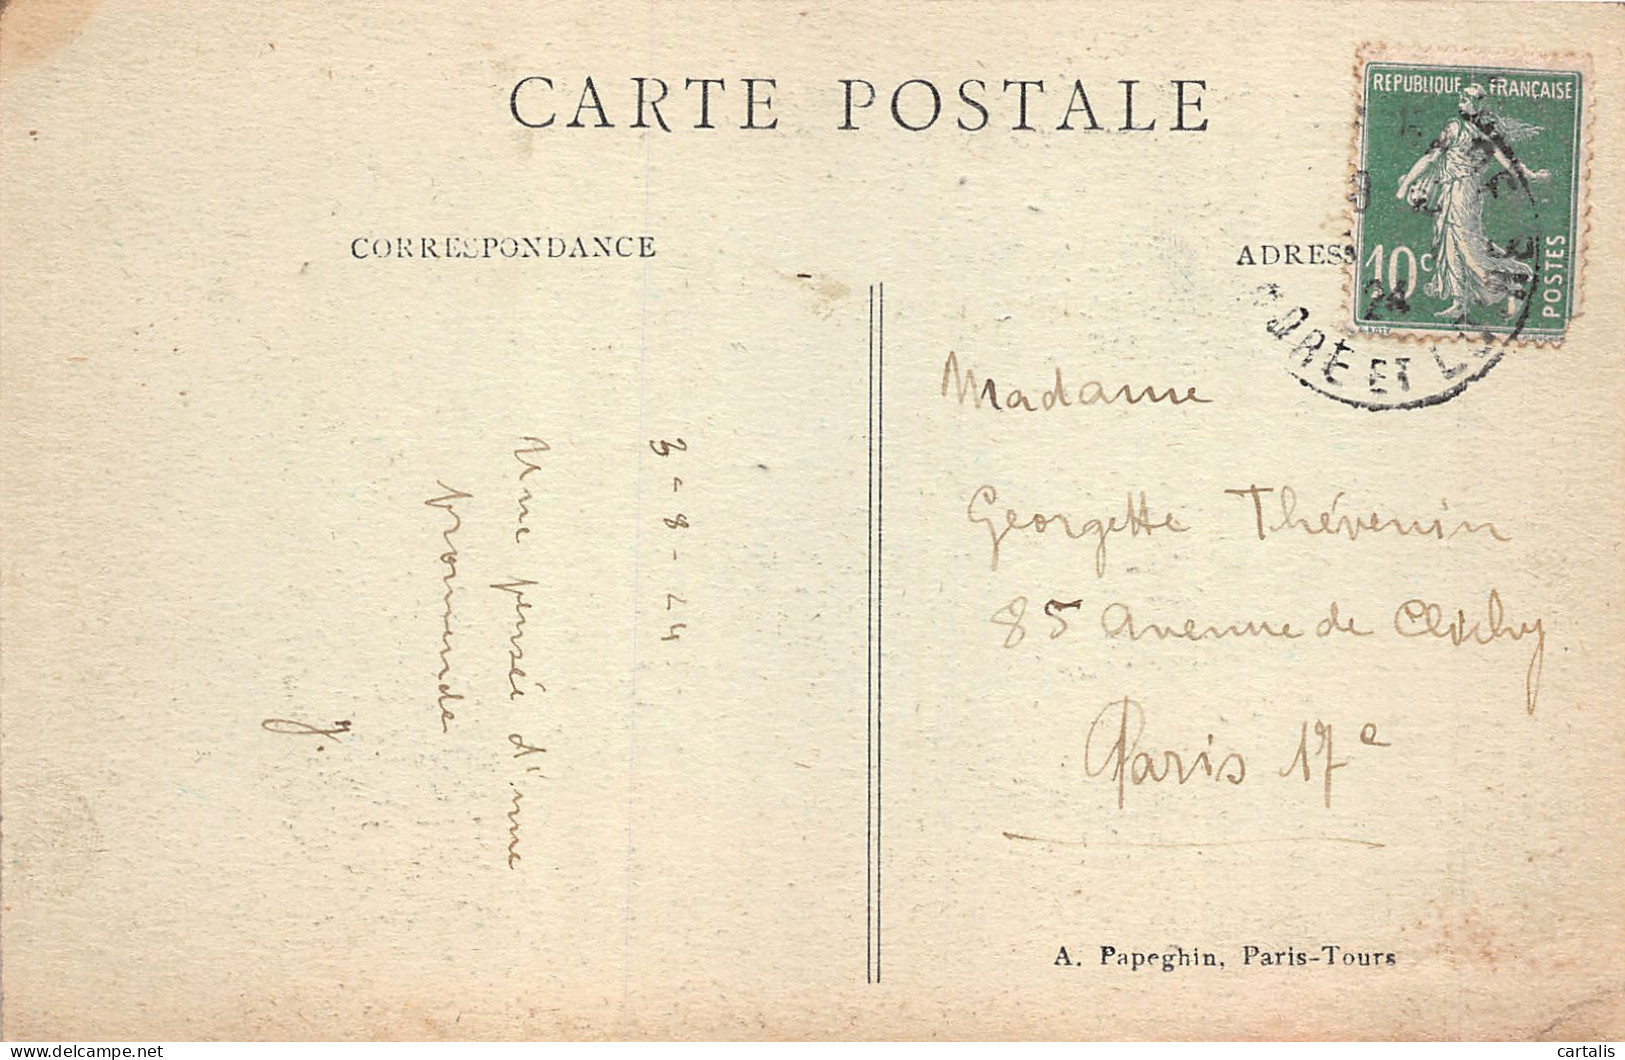 CARTE POSTALE
CORRESPONDANCE
ADRESS
REPUBLIQUE FRANÇAISE
10c
POSTES
24
INDRE ET L
3-8-24
Une pensée d'une
promenade
J.
Madame
Georgette Thévenin
85 Avenue de Clichy
Paris 17e
A. Papeghin, Paris-Tours
cartalis